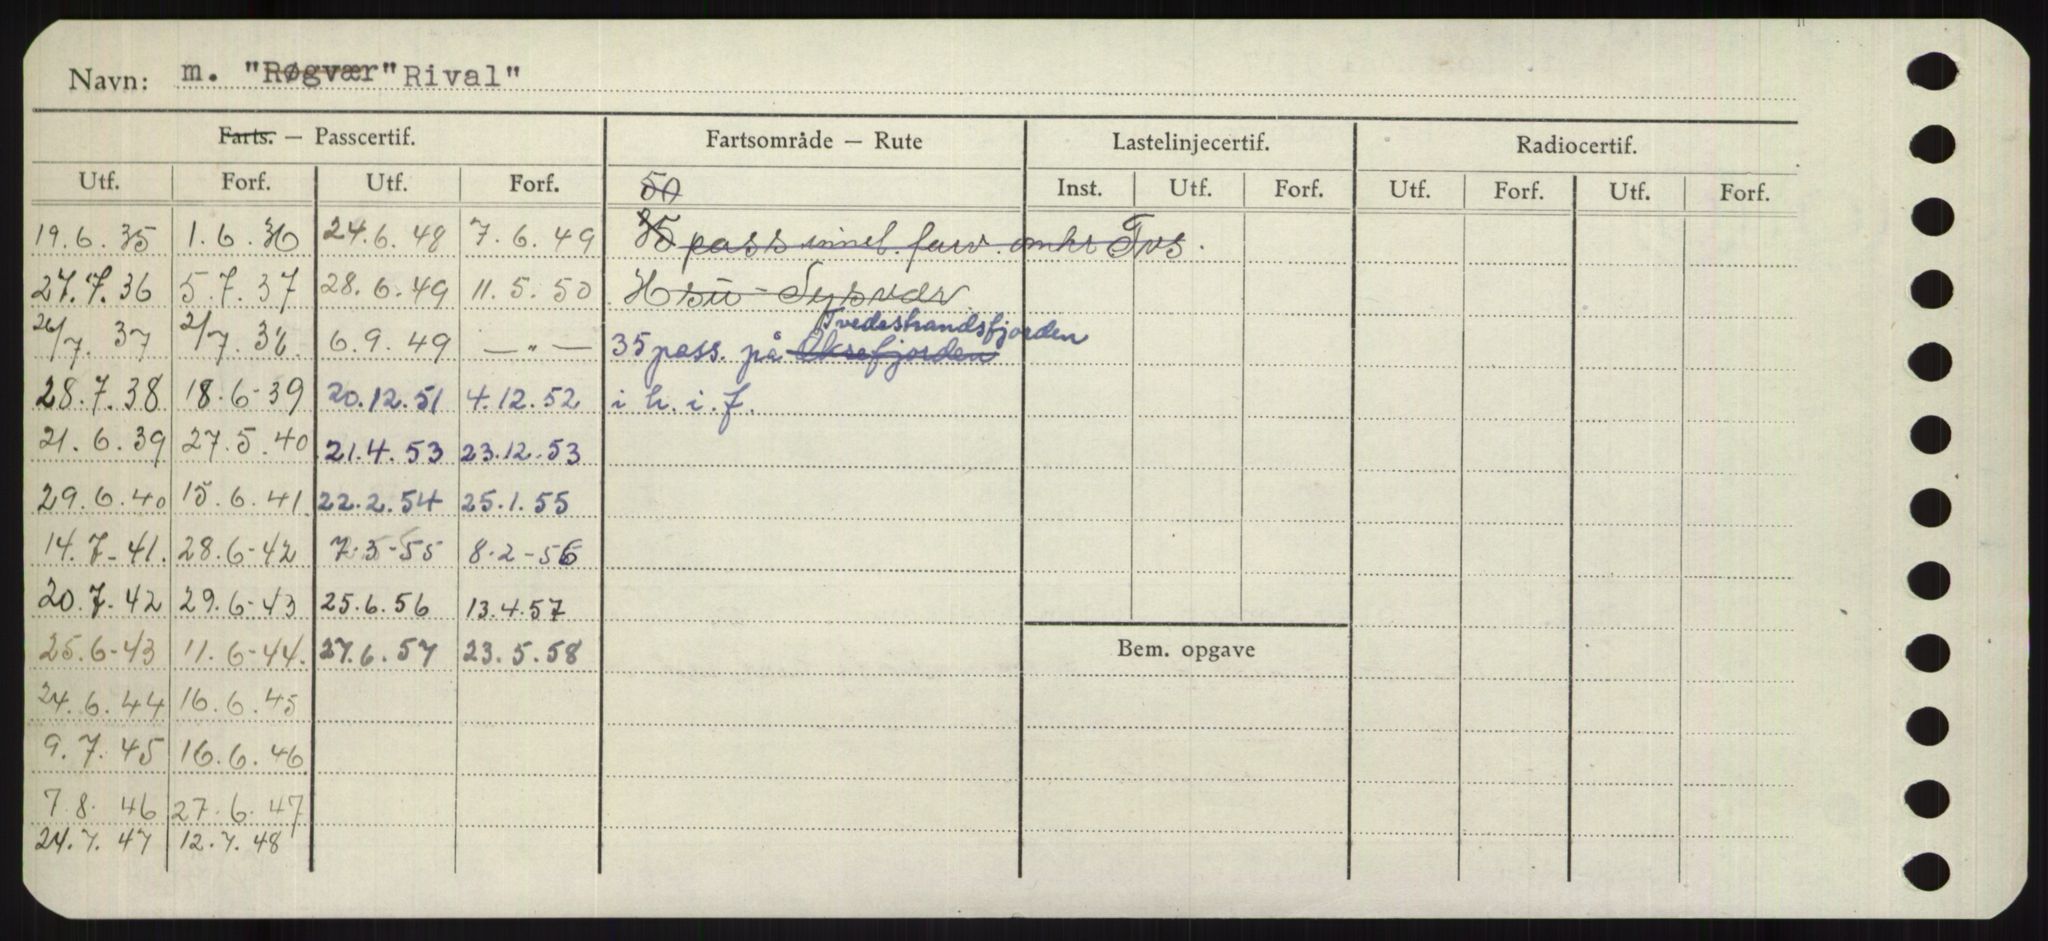 Navn: m. "Røgvær" Rival"
Farts. — Passcertif. Fartsområde — Rute Lastelinjecertif. Radiocertif.
Utf. Forf. Utf. Forf. 50 Inst. Utf. Forf. Utf. Forf. Utf. Forf.
19.6.35 1.6.36 24.6.48 7.6.49 35 pass innel. farv. omkr
27.7.36 5.7.37 28.6.49 11.5.50
Tvedestrandsfjorden
26/7. 37 2/7. 38. 6.9.49 — " — 35 pass. på Oksefjorden
28.7.38 18.6-39 20.12.51 4.12.52 i h. i. f.
21.6.39 27.5.40 21.4.53 23.12.53
29.6.40 15.6.41. 22.2.54 25.1.55
14.7-41. 28.6-42 7-3-55 8-2-56
20.7-42 29.6-43 25.6.56 13.4.57
25.6-43 11.6-44. 27.6.57 23.5.58 Bem. opgave
24.6.44 16.6.45
9.7.45 16.6.46
7.8. 46 27.6.47
24.7.47 12.7.48